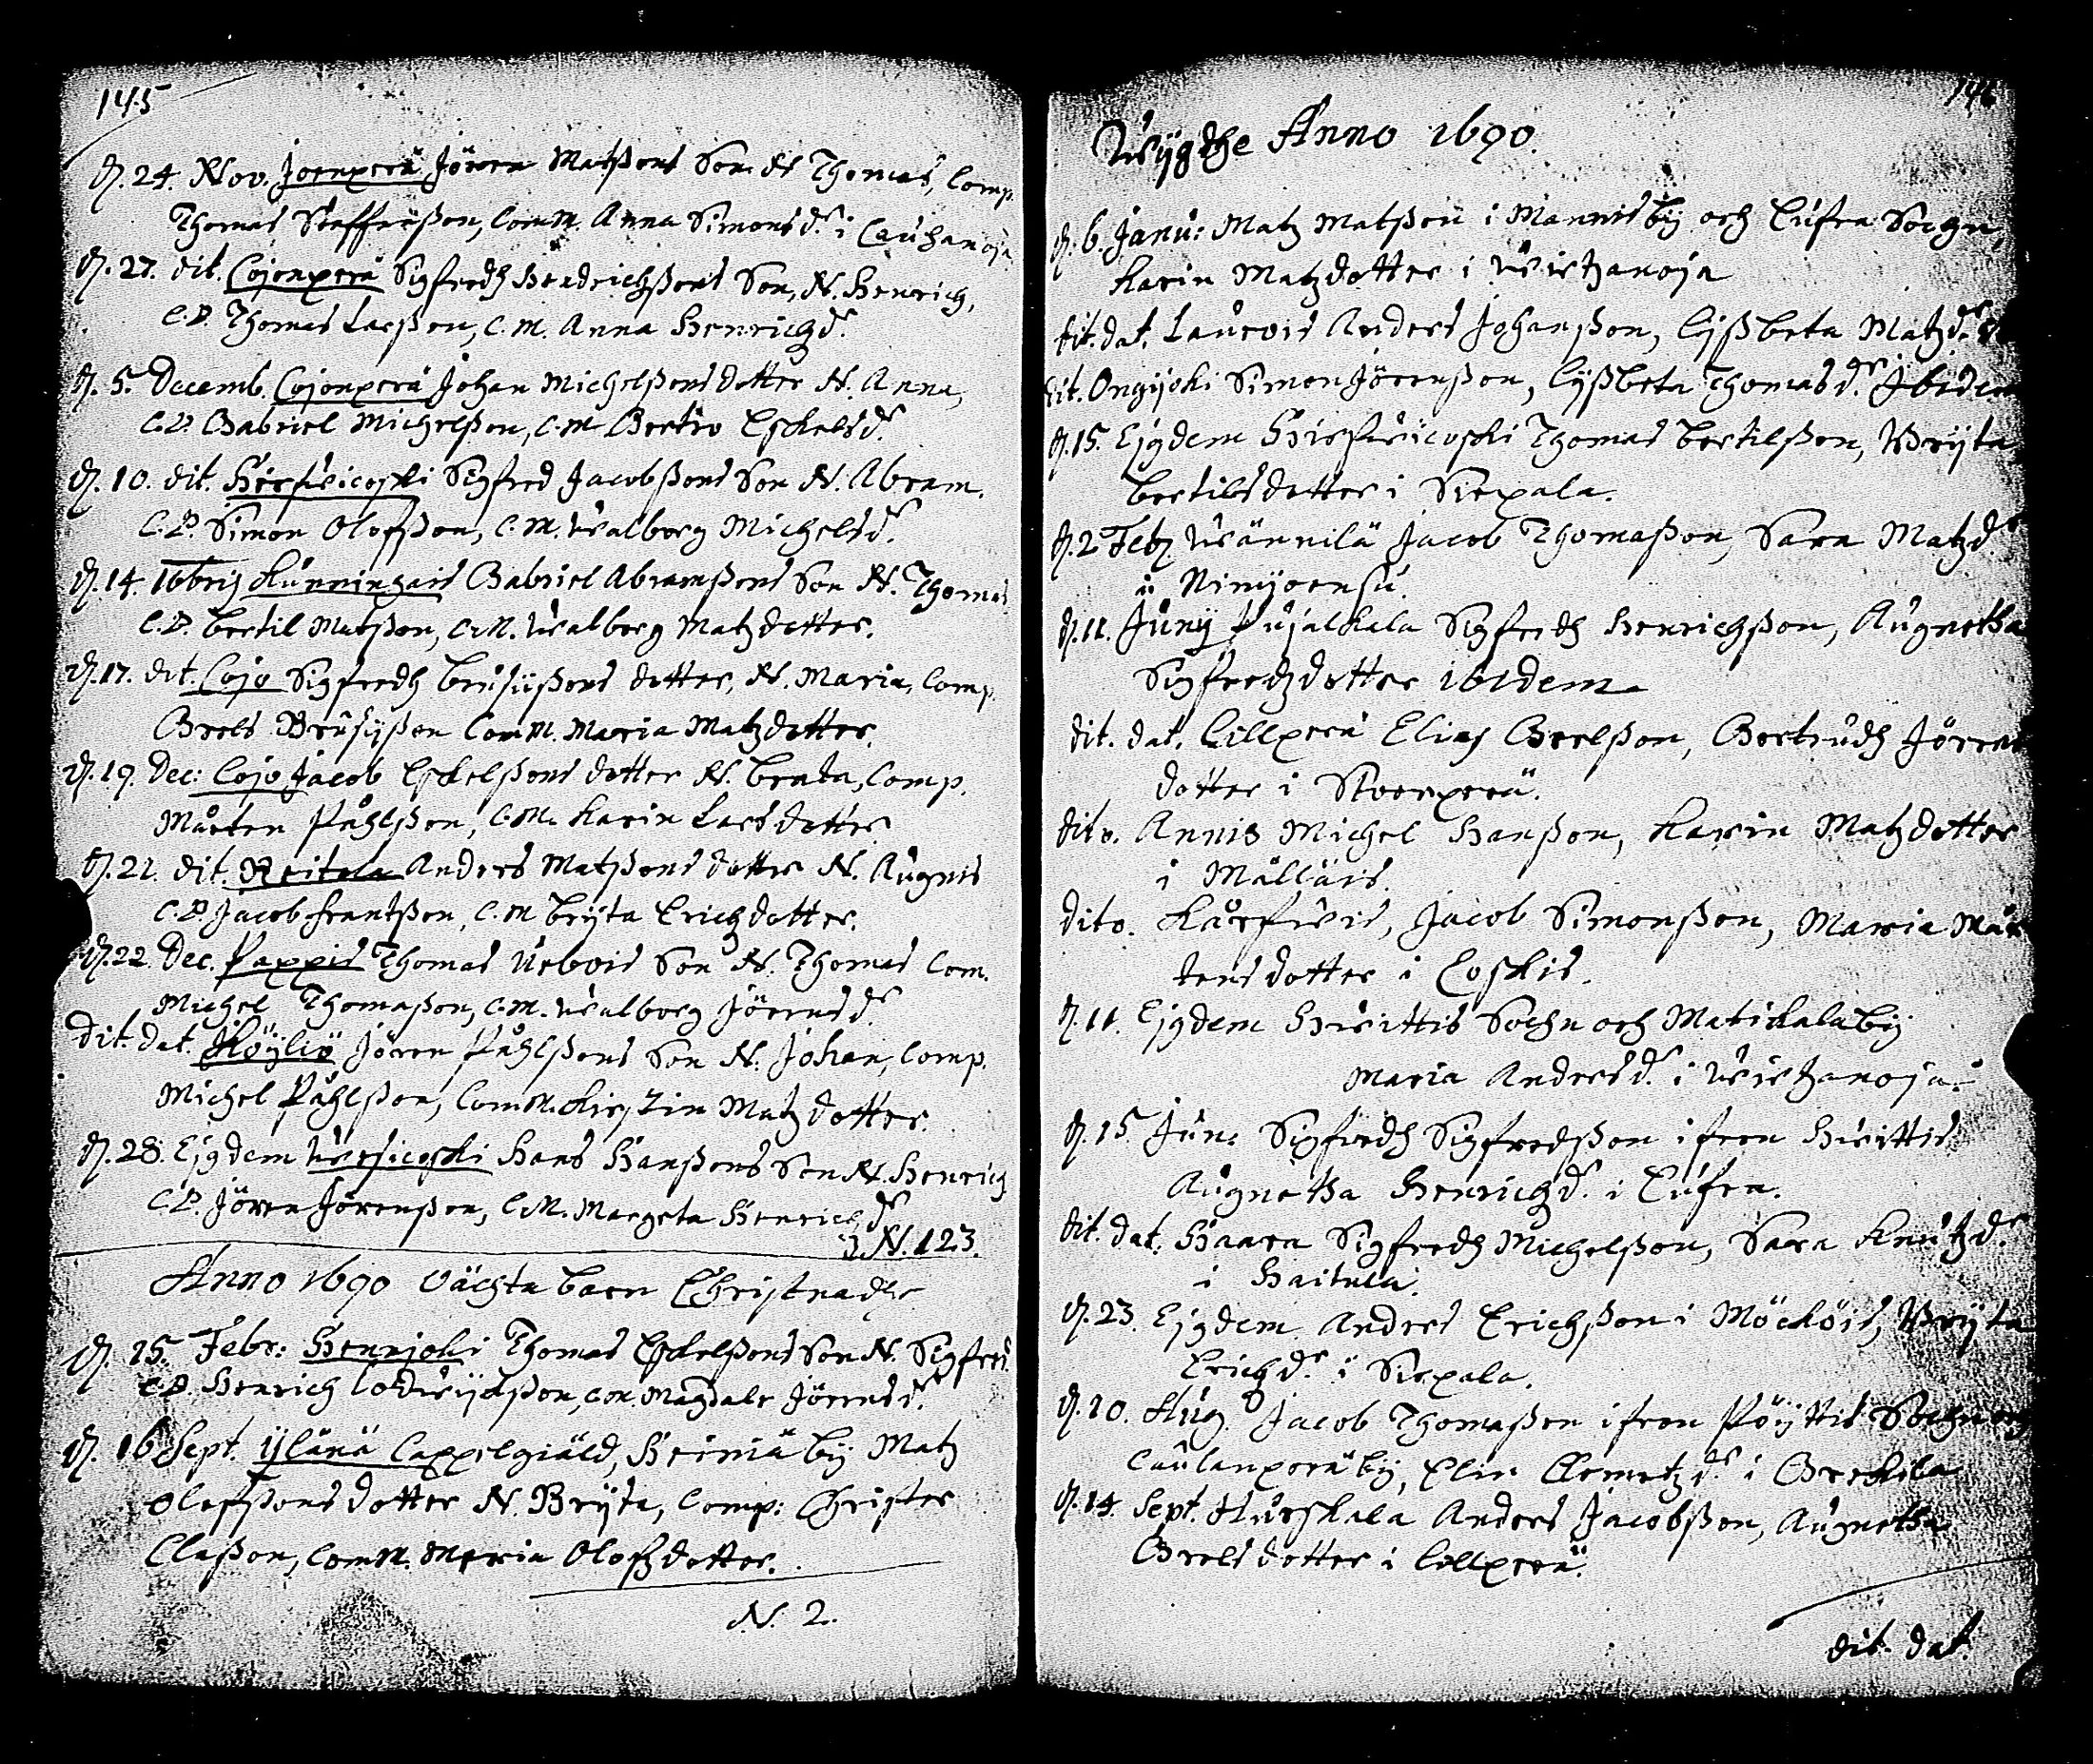 145
d. 24. Nov. Joenperä Jören Matßons Son N Thomas, Comp.
Thomas Staffenßon, Com M. Anna Simons dr. i Cauhanoja
d. 27. dit. Cojonperä Sigfredh Hendrichßons Son, N. Henrich,
C.P. Thomas Larßon, C.M. Anna Henrichz dr.
d. 5. Decemb. Cojonperä Johan Michelßons dotter N. Anna,
C.P. Gabriel Michelßon, C.M Bertro Eskelsdr.
d. 10. dit. Hirfwicoski Sigfred Jacobßons Son N. Abram.
C.P. Simon Olofßon, C.M. Walborg Michelsdr.
d. 14. 10bris Kunningais Gabriel Abramßons Son N. Thomas
C.P. Bertil Matßon, C.M. Walborg Matzdotter.
d. 17. dit. Cojo Sigfredh Brusijßons dotter, N. Maria, Comp.
Grels Brusijßon Com M. Maria Matzdotter.
d. 19. Dec: Cojo Jacob Eskelßons dotter N. Beata, Comp.
Mårten Påhlßon, C.M. Karin Lars dotter
d. 21. dit. Reitola Anders Matßons dotter N. Augnis
C.P. Jacob Frantßon, C.M Bryta Erichzdotter.
d. 22. Dec. Pappis Thomas Urbois Son N. Thomas Com.
Michel Thomaßon, C.M. Walborg Jörens dr.
Dit. dat. Köyliö Jören Påhlßons Son N. Johan, Comp.
Michel Påhlßon, Com M. Kirstin Matz dotter.
d. 28. Ejgdem Wersicoski Hans Hanßons Son N. Henrich
C.P. Jören Jörenßon, C.M. Margeta Henrichz dr
N. 123.
Anno 1690 Oächta barn Christnadhe
d. 15. Febr: Hennjoki Thomas Eskelßons Son N. Sigfred.
C.P. Henrich Lodwijckßon, Com. Magdale Jörens dr.
d. 16 Sept. Ylänä Cappelgiäld, Heiniä bij Matz
Olofßons dotter N. Bryta, Comp: Christer
Claßon, Com M. Maria Olofzdotter.
N. 2.
146
Wijgdhe Anno 1690.
d. 6. Janu: Matz Matßon i Mannis bij och Eufra Sochn,
Karin Matzdotter i Wirtzanoja
dit. dat. Laurois Anders Johanßon, Lijßbeta Matzdr.
dit. Ongijoki Simon Jörenßon, Lyßbeta Thomas dr. Ibidem
d. 15. Ejgdem Hirfwicoski Thomas Bertilßon, Bryta
Bertilsdotter i Siepala.
d. 2 Feb. Wännilä Jacob Thomaßon, Sara Matzdr.
i Nimijoensu.
d. 11. Junij Pujalkala Sigfredh Henrichßon, Augnetha
Sigfredzdotter ibidem
dit. dat. Lillperä Elias Grelßon, Gertrudh Jörens
dotter i Storperä.
dito. Annis Michel Hanßon, Karin Matzdotter
i Mälläis.
dito. Karfwis, Jacob Simonßon, Maria Mår
tensdotter i Coskis.
d. 11. Ejgdem Hwittis Sochn och Matickala bij
Maria Andersdr. i Wirtzanoja
d. 15. Jun: Sigfredh Sigfredßon ifrån Hwittis
Augnetha Henrichzdr. i Eufra.
dit. dat: Haara Sigfredh Michelßon, Sara Knutzdr.
i Haitula.
d. 23. Ejgdem Anders Erichßon i Möcköis, Bryta
Erichzdr. i Siepala.
d. 10. Aug. Jacob Thomaßon ifrån Pöyttis Sochn och
Caulanperä bij, Elin Clemetzdr. i Greckila
d. 14. Sept. Hurskala Anders Jacobßon, Augnetha
Grelsdotter i Lillperä.
dit. dat.